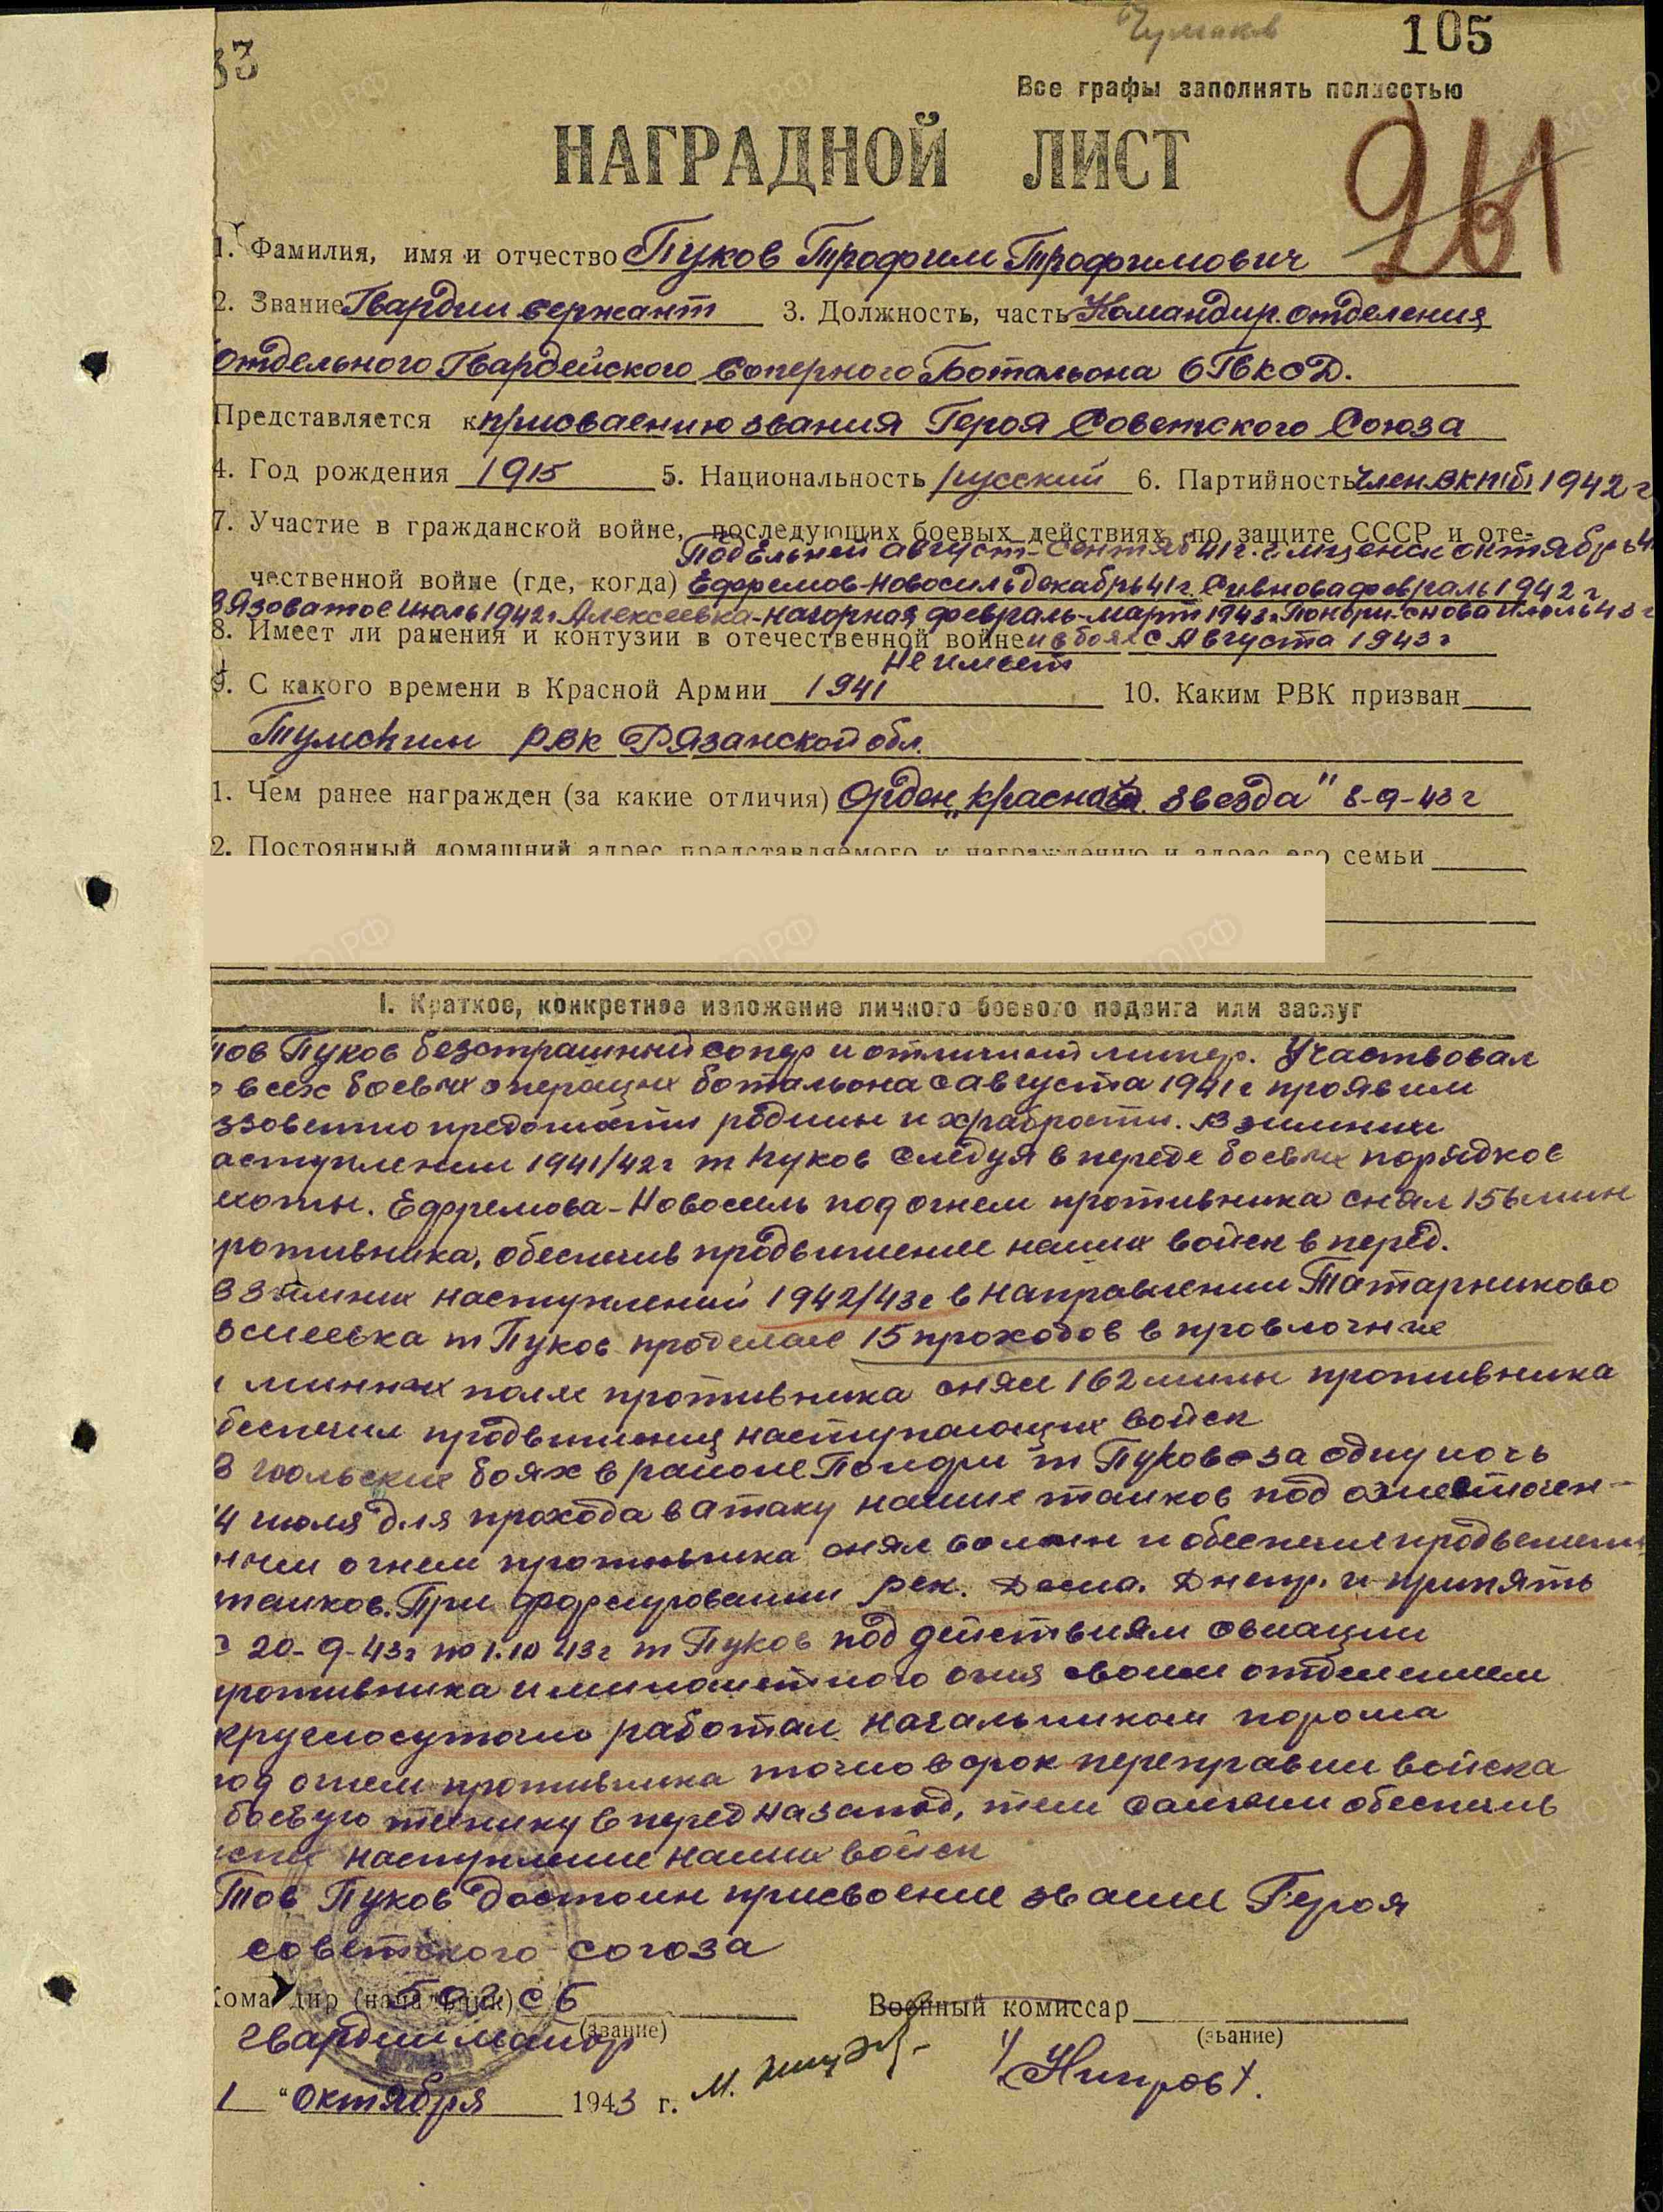 33
Чумаков
105
Все графы заполнять полностью
НАГРАДНОЙ ЛИСТ
261
1. Фамилия, имя и отчество Пуков Трофим Трофимович
2. Звание Гвардии сержант 3. Должность, часть Командир. отделения
отдельного Гвардейского Соперного Ботальона 6 ГвКСД.
Представляется к присваению звания Героя Советского Союза
4. Год рождения 1915 5. Национальность русский 6. Партийность член ВКП(б) 1942 г
7. Участие в гражданской войне, последующих боевых действиях по защите СССР и оте-
Под Ельней август-сентяб 41 г. г Мценск октябрь 41
чественной войне (где, когда) Ефремов-Новосиль декабрь 41 г. февраль 1942 г
июль 1942 г Алексеевка-Нагорная февраль-март 1943 г. Понори-снова июль 43 г
8. Имеет ли ранения и контузии в отечественной войне и в боях с Августа 1943 г
не имеет
9. С какого времени в Красной Армии 1941 10. Каким РВК призван
Тумским РВК Рязанской обл.
1. Чем ранее награжден (за какие отличия) Орден „Красной звезда" 8-9-43 г
2. Постоянный домашний адрес представляемого к награждению и адрес его семьи
I. Краткое, конкретное изложение личного боевого подвига или заслуг
тов Пуков безстрашный сопер и отличный минер. Участвовал
всех боевых операциях ботальона с августа 1941 г проявил
родины и храбрости. В зимнии
аступлении 1941/42 г т Пуков следуя в переде боевых порядков
ехоты. Ефремова-Новосиль под огнем противника снял 156 мин
противника, обеспечив продвижение наших войск в перед.
В зимних наступлений 1942/43 г в направлении Татарниково
т Пуков проделал 15 проходов в проволочные
и минных полях противника снял 162 мины противника
беспечил продвижения наступающих войск
В июльских боях в районе Понори т Пуков за одну ночь
4 июля для прохода в атаку наших танков под ожесточен-
ным огнем противника снял мин и обеспечил продвежение
танков. При форсировании рек. Десна. Днепр. и припять
с 20-9-43 г по 1.10 43 г т Пуков под действиям овиации
противника и минометного огня своим отделением
круглосуточно работал начальником порома
под огнем противника точно в срок переправил войска
боевую технику в перед на запад, тем самым обеспечив
наступление наших войск
Тов Пуков достоин присвоение звание Героя
советского союза
Командир (начальник) СБ
(звание)
гвардии майор
Военный комиссар
(звание)
1 " октября 1943 г.